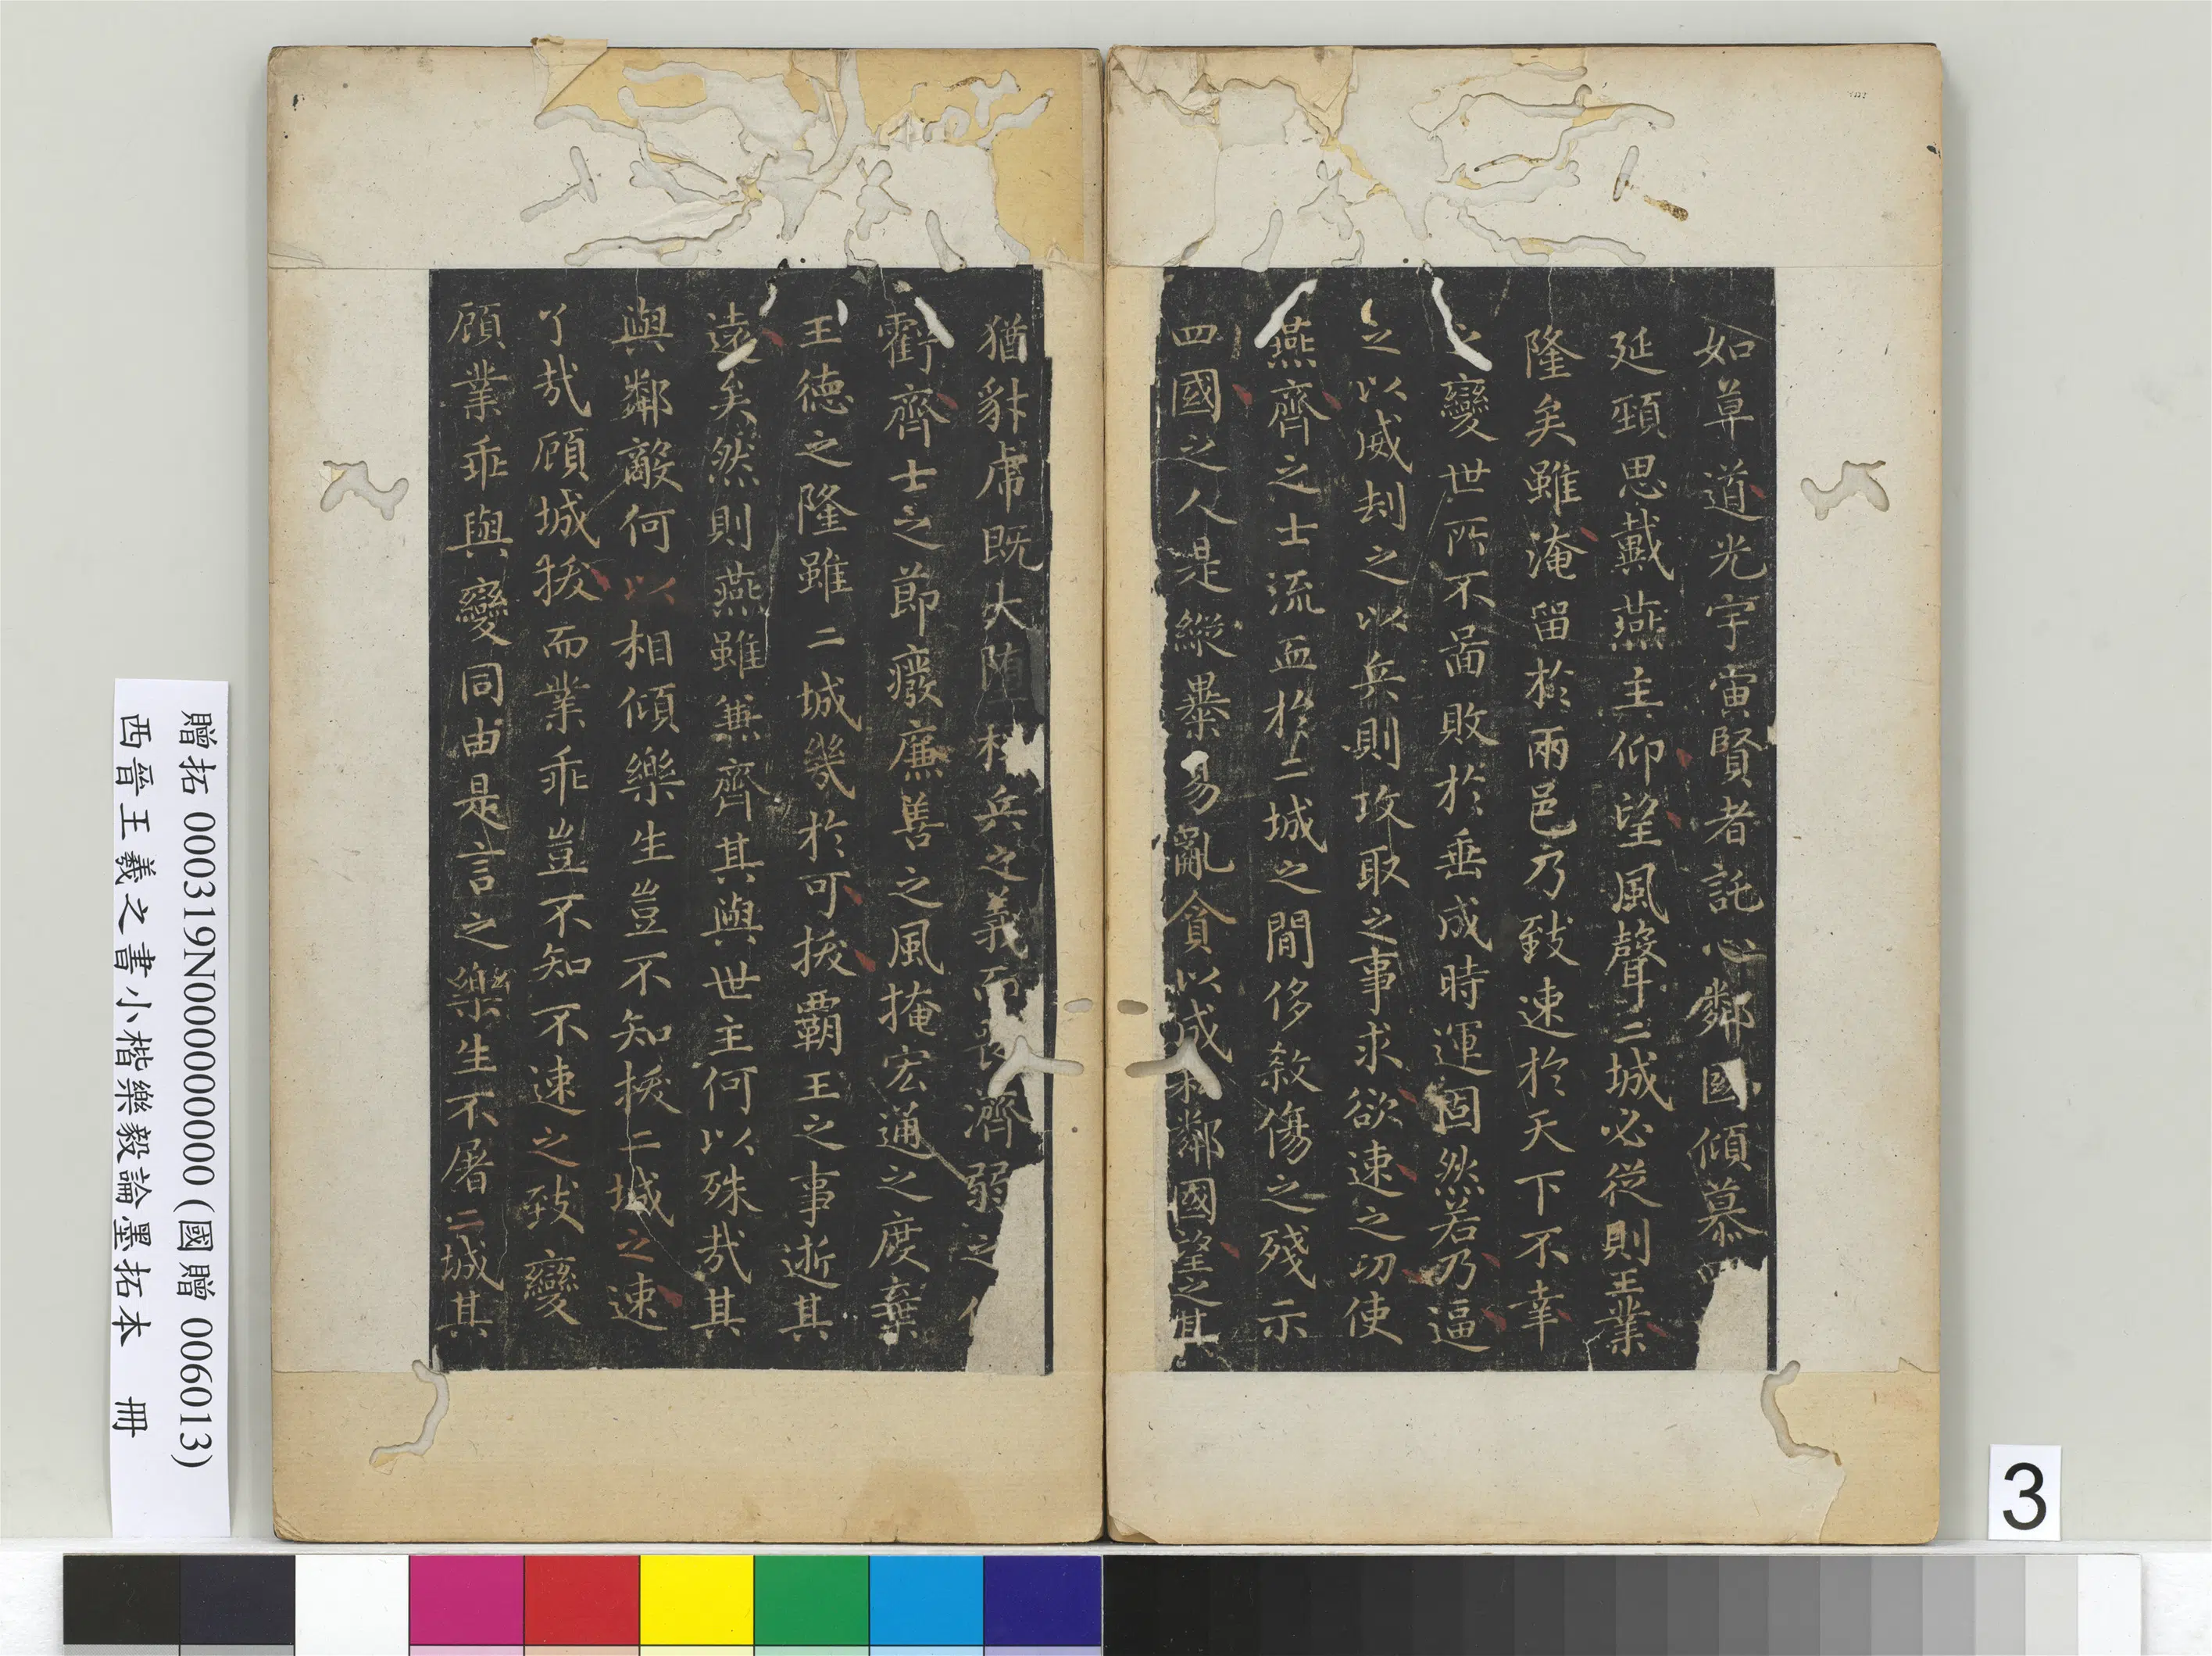 如草道光宇宙賢者託心鄰國傾慕四
延頸思戴燕主仰望風聲二城必從則王業
隆矣雖淹留於兩邑乃致速於天下不幸
之變世所不啚敗於垂成時運固然若乃逼
之以威刦之以兵則攻取之事求欲速之功使
燕齊之士流血於二城之閒侈殺傷之殘示
四國之人是縱暴易亂貪以成私鄰國望之其
猶豺虎既大堕稱兵之義而喪濟弱之仁
虧齊士之節廢廉善之風掩宏通之度棄
王德之隆雖二城幾於可拔覇王之事逝其
遠矣然則燕雖兼齊其與世主何以殊哉其
與鄰敵何以相傾樂生豈不知拔二城之速
了哉顧城拔而業乖豈不知不速之致變
顧業乖與變同由是言之樂生不屠二城其
贈拓 000319N000000000 (國贈 006013)
西晉王羲之書小楷樂毅論墨拓本 冊
3